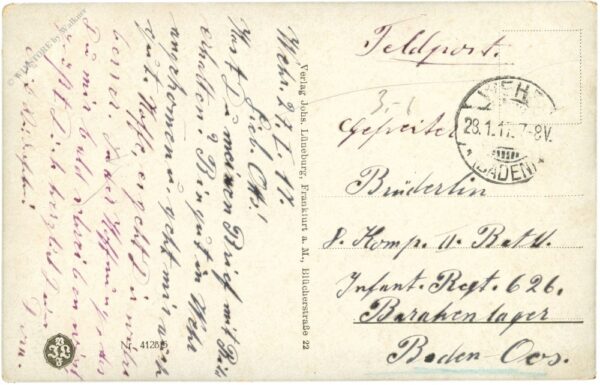 Wehr, 27.I.17.
Lieb. Otto!
Hast Du meinen Brief mit Bild
erhalten? Bin gut in Wehr
angekommen u. geht mir auch
gut. Hoffe, es geht Dir wieder
besser. In der Hoffnung, daß
Du mir bald schreiben wirst
grüßt Dich herzlich Deine
Dora.
Verlag Johs. Lüneburg, Frankfurt a. M., Blücherstraße 22
Z. 41265
Feldpost.
Gefreiter
Brüderlin
8. Komp. II. Batl.
Infant. Regt. 626.
Baracken lager
Baden Oos.
WEHR
28.1.17. 7-8V.
(BADEN)